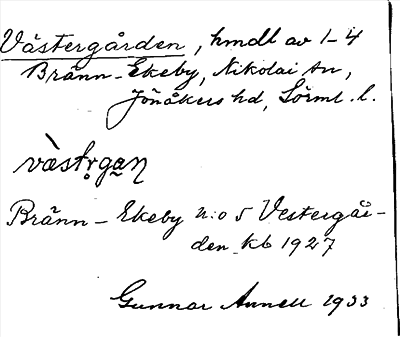 Västergården, hmdl av 1-4
Bränn-Ekeby, Nikolai sn,
Jönåkers hd, Sörml. l.
västr̥gan
Bränn-Ekeby n:o 5 Vestergår-
den kb 1927
Gunnar Annell 1933